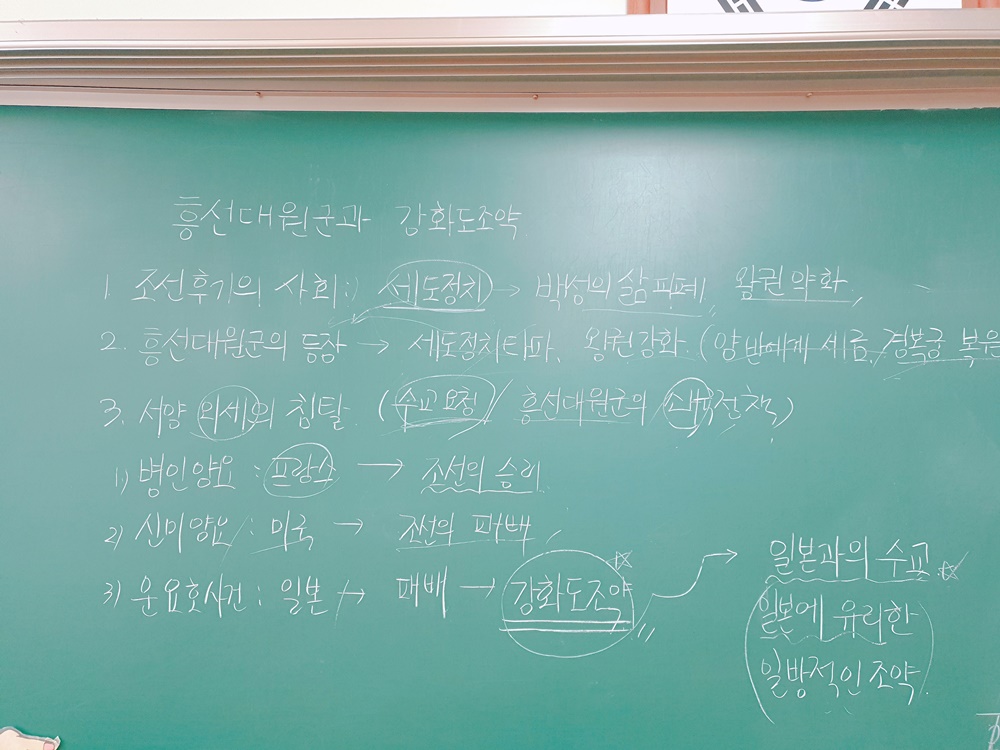 흥선대원군과 강화도조약
1. 조선후기의 사회 : 세도정치 → 백성의 삶 피폐, 왕권약화
2. 흥선대원군의 등장 → 세도정치타파, 왕권강화 (양반에게 세금, 경복궁 복원
3. 서양 외세의 침탈 (수교요청 / 흥선대원군의 쇄국전책)
1) 병인양요 : 프랑스 → 조선의 승리
2) 신미양요 : 미국 → 조선의 패배
3) 운요호사건 : 일본 → 패배 → 강화도조약 → 일본과의 수교
일본에 유리한
일방적인 조약.